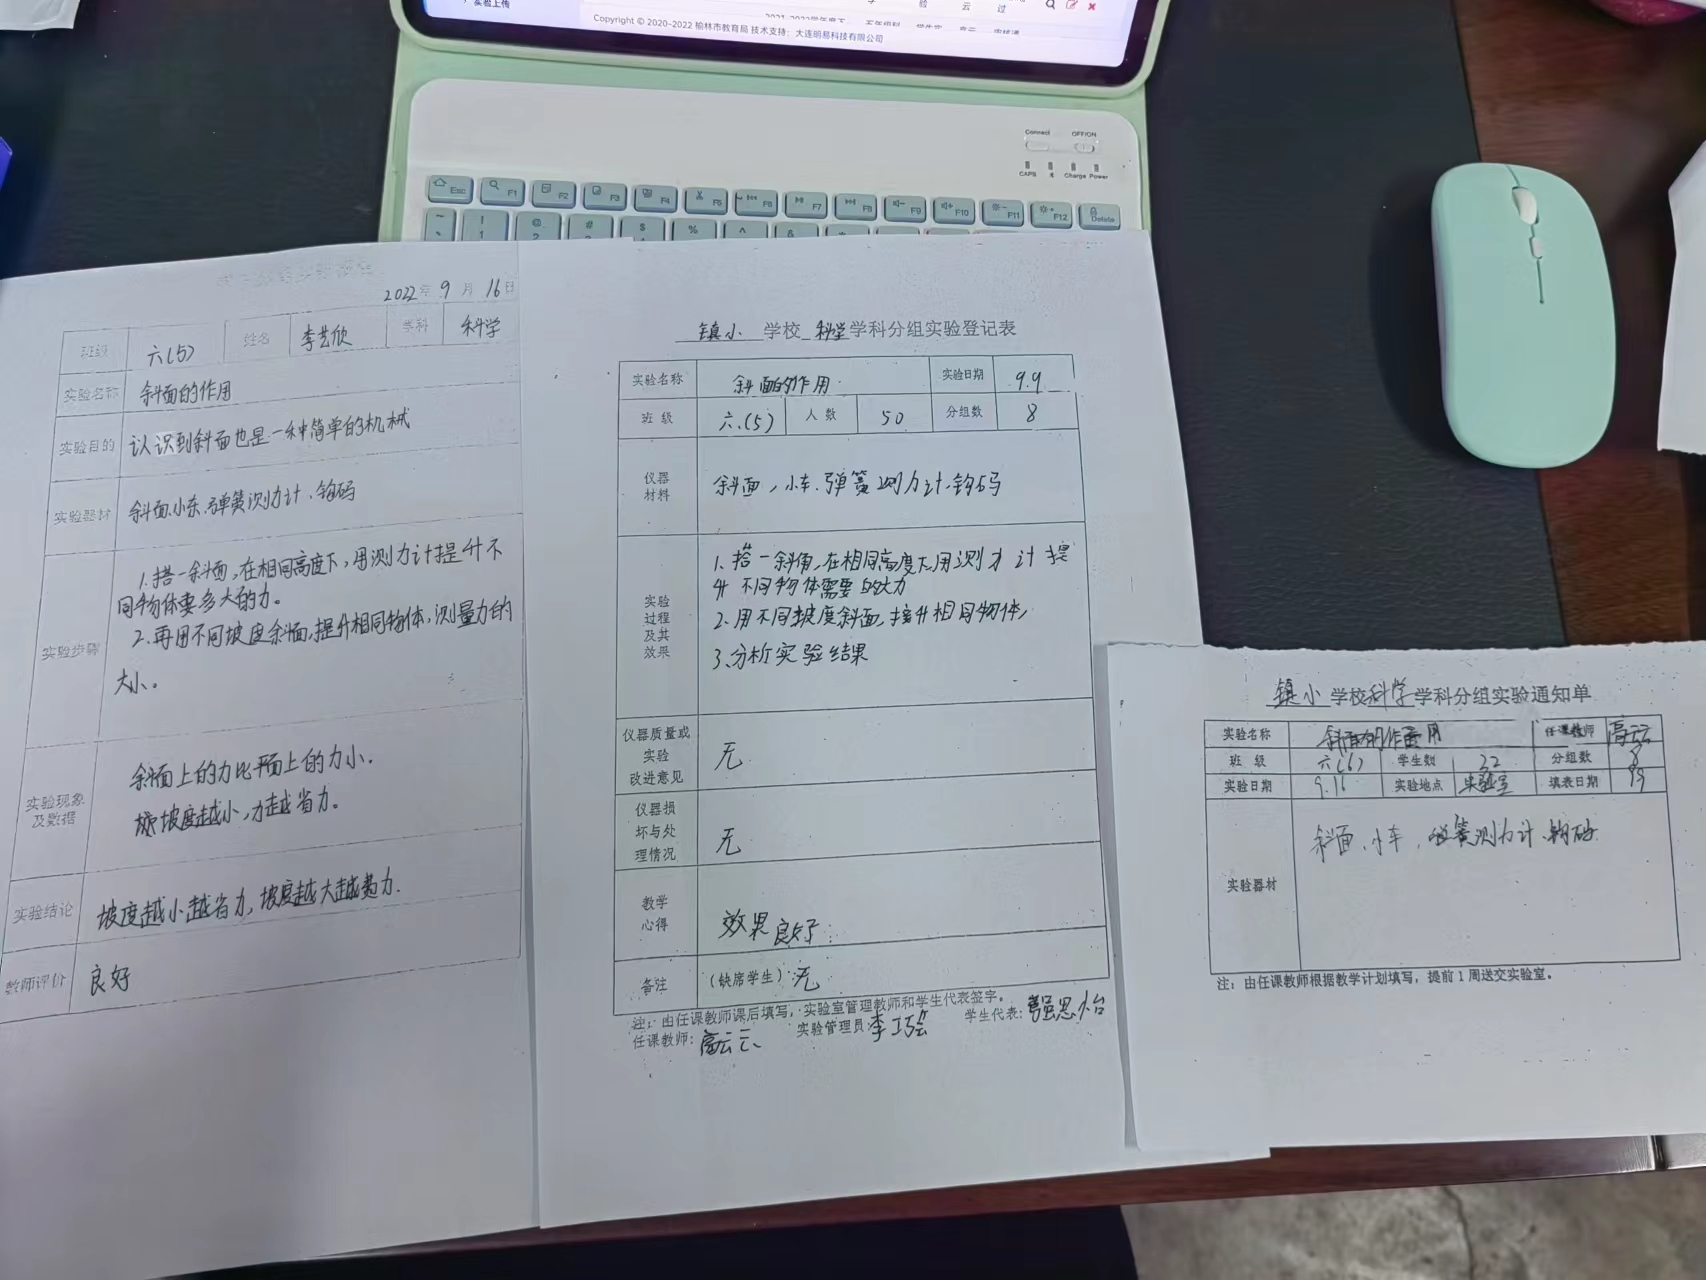 实验上传
Copyright © 2020-2022 榆林市教育局 技术支持：大连明易科技有限公司
Connect OFF/ON
CAPS Charge Power
Esc F1 F2 F3 F4 F5 F6 F7 F8 F9 F10 F11 F12 Delete
2022年 9 月 16日
班级 六(5) 姓名 李艺欣 学科 科学
实验名称 斜面的作用
实验目的 认识到斜面也是一种简单的机械
实验器材 斜面、小车、弹簧测力计、钩码
实验步骤
1.搭一斜面,在相同高度下,用测力计提升不
同物体要多大的力。
2.再用不同坡度余面,提升相同物体,测量力的
大小。
实验现象及数据
余面上的力比平面上的力小.
坡度越小,力越省力。
实验结论 坡度越小越省力,坡度越大越费力.
教师评价 良好
镇小 学校 科学 学科分组实验登记表
实验名称 斜面的作用 实验日期 9.9
班 级 六.(5) 人 数 50 分组数 8
仪器材料 斜面,小车、弹簧测力计、钩码
实验过程及其效果
1、搭一斜角,在相同高度下,用测力计提
升不同物体需要的大力
2、用不同坡度斜面,提升相同物体,
3、分析实验结果
仪器质量或实验改进意见 无
仪器损坏与处理情况 无
教学心得 效果良好
备注 (缺席学生) 无
注：由任课教师课后填写，实验室管理教师和学生代表签字。
任课教师: 高云云 实验管理员: 李巧绘 学生代表: 强思怡
镇小 学校 科学 学科分组实验通知单
实验名称 斜面的作用 任课教师 高云云
班 级 六(6) 学生数 32 分组数 8
实验日期 9.16 实验地点 实验室 填表日期 9.9
实验器材 斜面、小车,弹簧测力计、钩码
注：由任课教师根据教学计划填写，提前 1 周送交实验室。